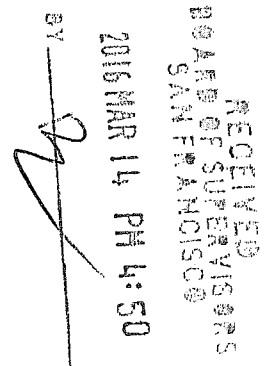 RECEIVED
BOARD OF SUPERVISORS
SAN FRANCISCO
2016 MAR 14 PM 4:50
BY